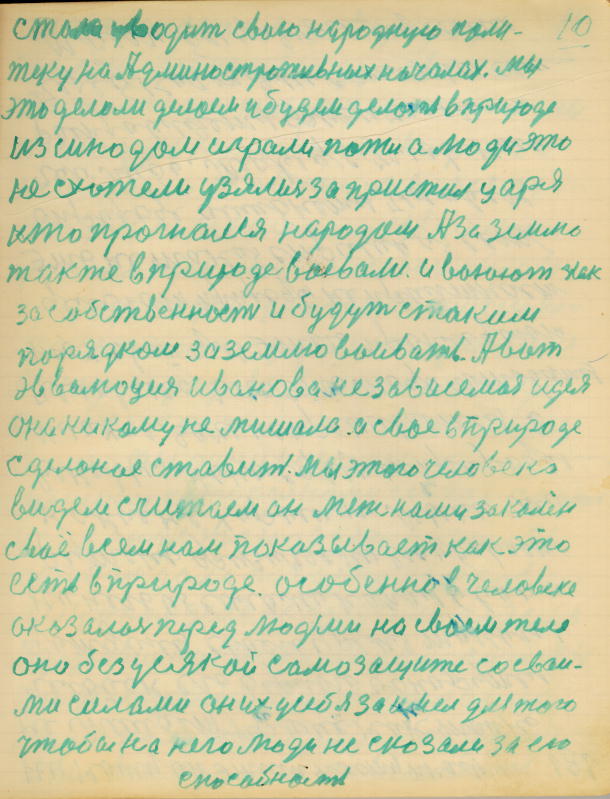 10
стала уводит свою народную поли-
тику на Административных началах. мы
это делали делаем и будем делать в природе
из синодом играли почти а люди это
не схотели узялися за пристол царя
кто прогнался народом А за землю
также в природе воевали. и воюют как
за собственность и будут с таким
порядком за землю воивать. А вот
эвалюция Иванова независемая идея
она никому не мишала. а свое в природе
сделоное ставит. мы этого человека
видем считаем он меж нами законен
своё всем нам показывает как это
есть в природе. особенно в человеке
оказалося перед людьми на своем теле
оно без усякой самозащите со сваи-
ми силами он их у себя заимел для того
чтобы на него люди не сказали за его
способность